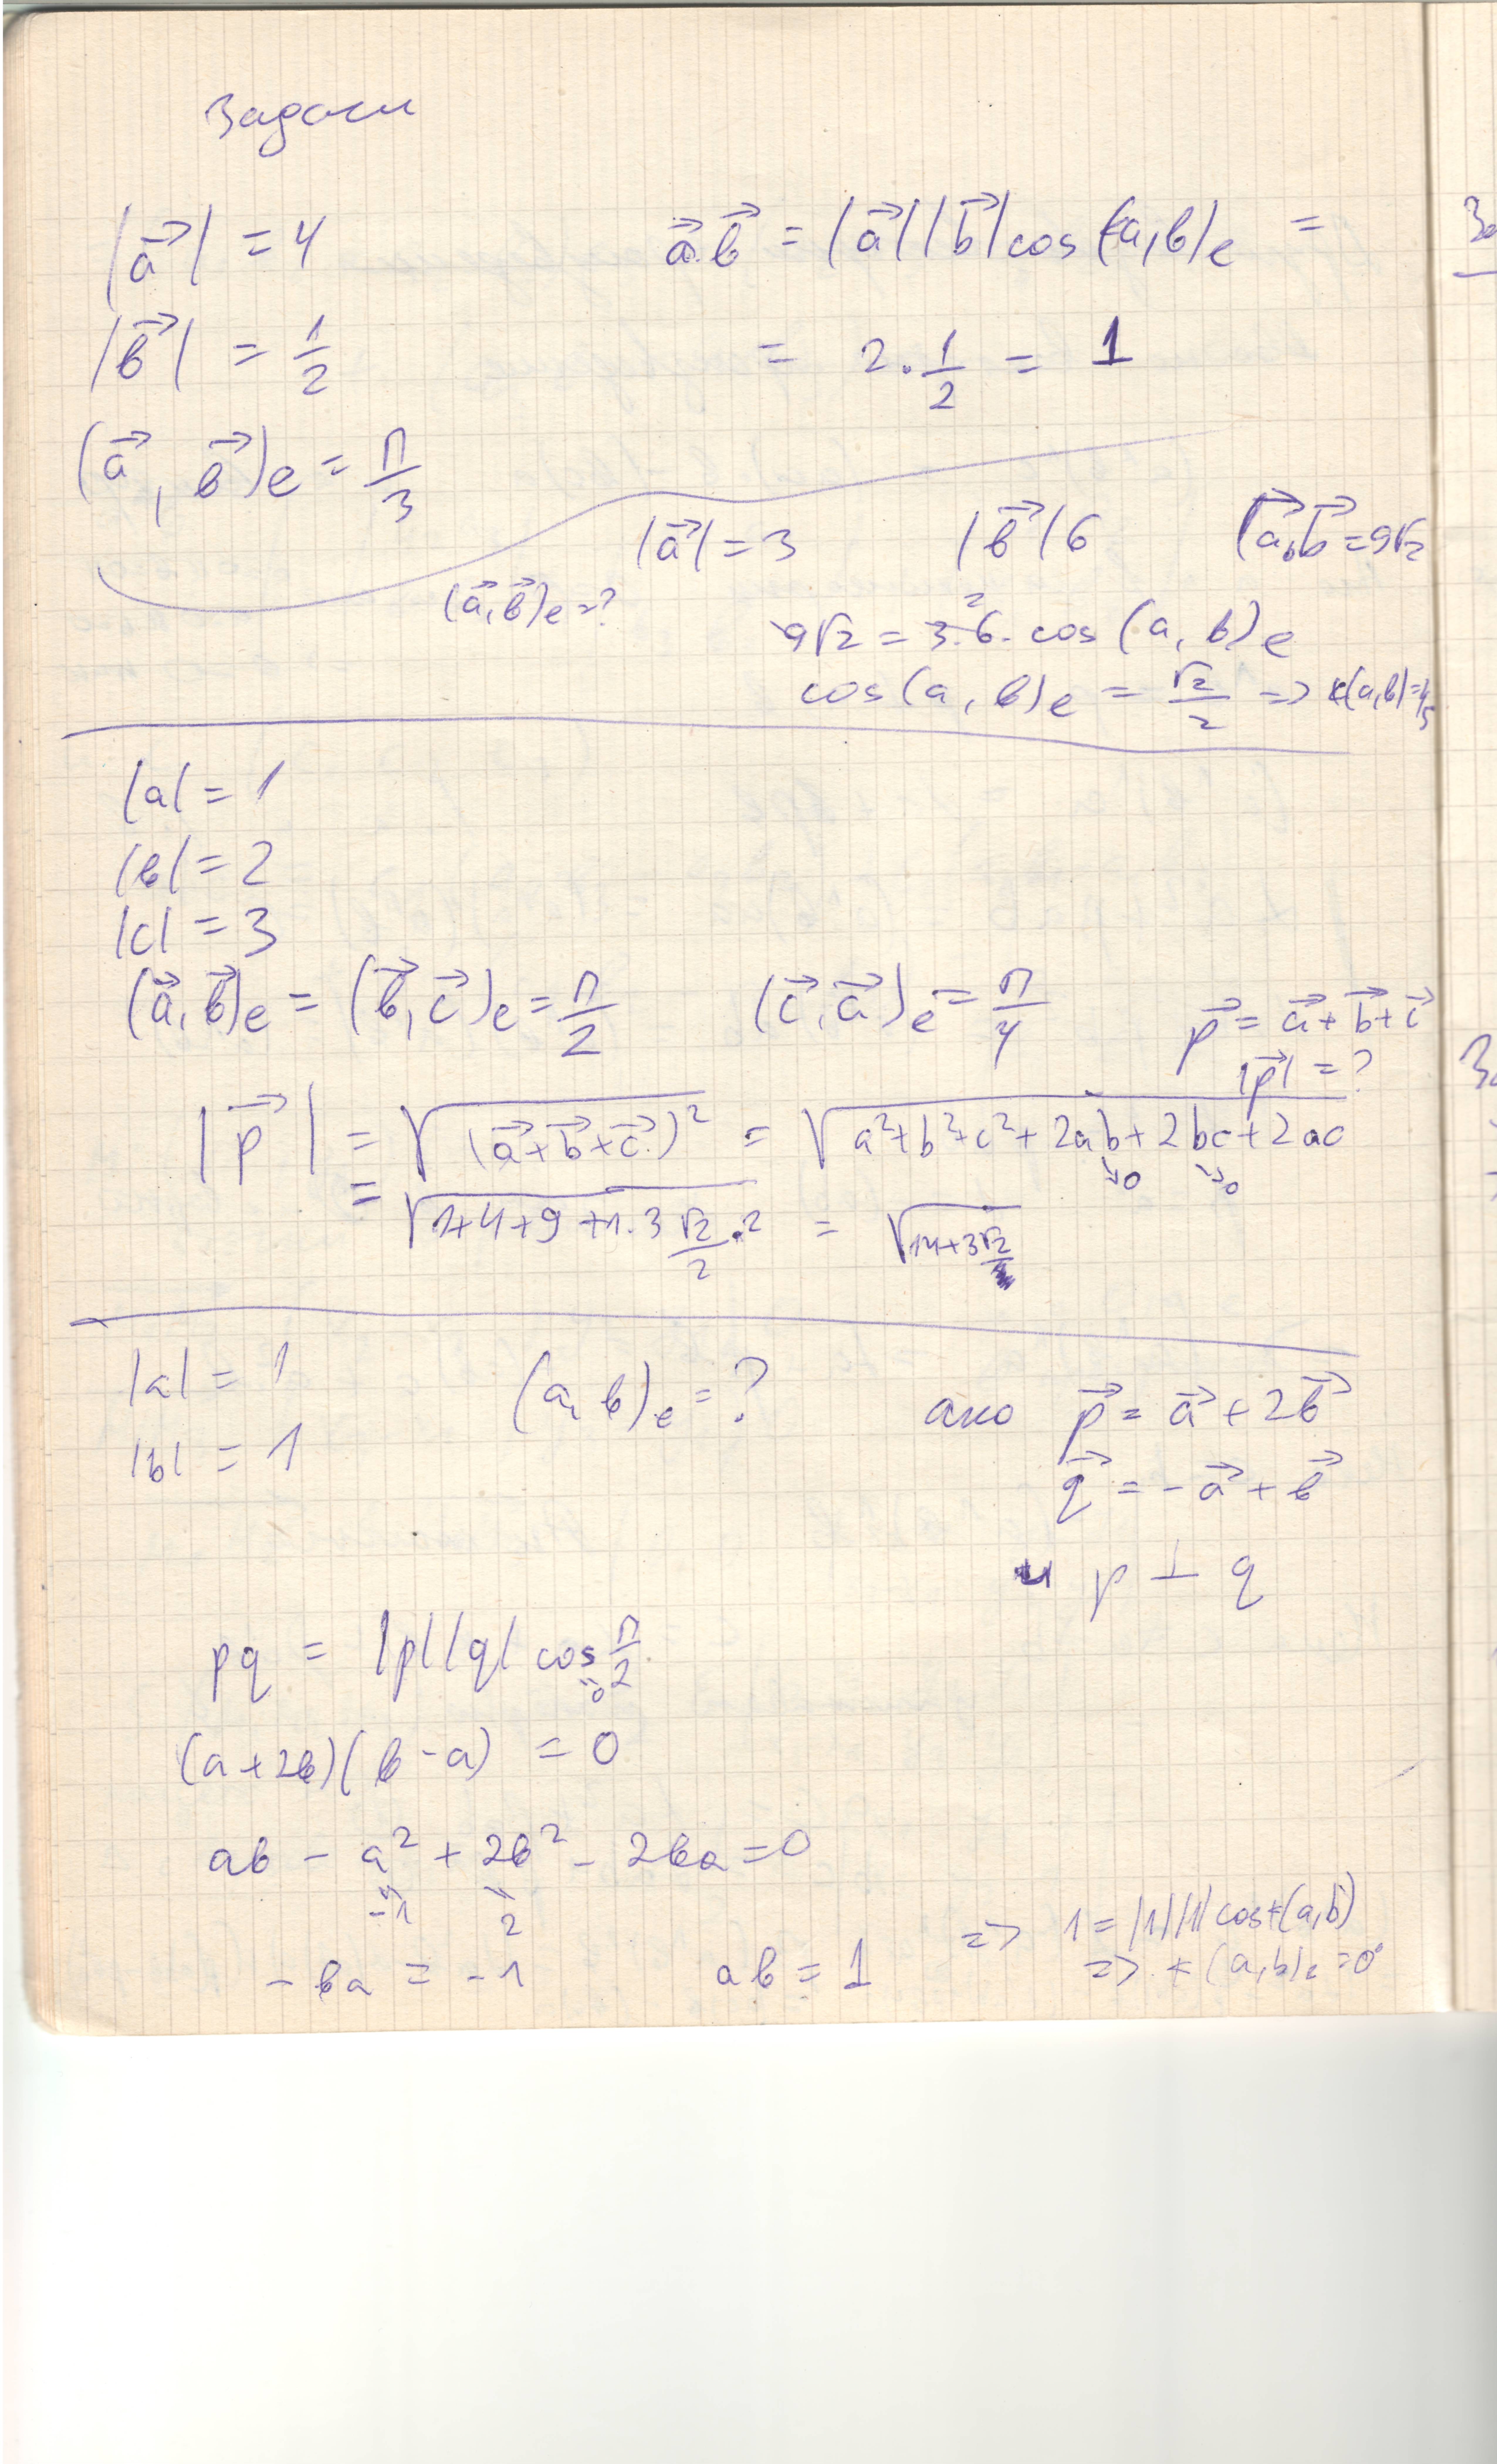 Задачи
|a⃗| = 4
a⃗.b⃗ = |a⃗||b⃗|cos ∢(a,b)e =
|b⃗| = 1/2
= 2.1/2 = 1
(a⃗, b⃗)e = π/3
|a⃗| = 3 |b⃗| 6 a⃗.b⃗ = 9√2
(a⃗,b⃗)e = ?
9√2 = 3.6. cos (a, b)e
cos(a, b)e = √2/2 =>
|a| = 1
|b| = 2
|c| = 3
(a⃗,b⃗)e = (b⃗,c⃗)e = π/2 (c⃗,a⃗)e = π/4 p⃗ = a⃗+b⃗+c⃗
|p⃗| = ?
|p⃗| = √(a⃗+b⃗+c⃗)² = √a²+b²+c²+2ab+2bc+2ac
↘0 ↘0
= √1+4+9+1.3 √2/2 .2 = √14+3√2
|a| = 1 (a, b)e = ? ако p⃗ = a⃗ + 2b⃗
|b| = 1
q⃗ = -a⃗ + b⃗
и p ⊥ q
pq = |p||q| cos π/2
=0
(a+2b)(b-a) = 0
ab - a² + 2b² - 2ba = 0
-1 2
=> 1 = |1||1|cos∢(a,b)
- ba = -1 ab = 1
=> ∢(a,b)e = 0°